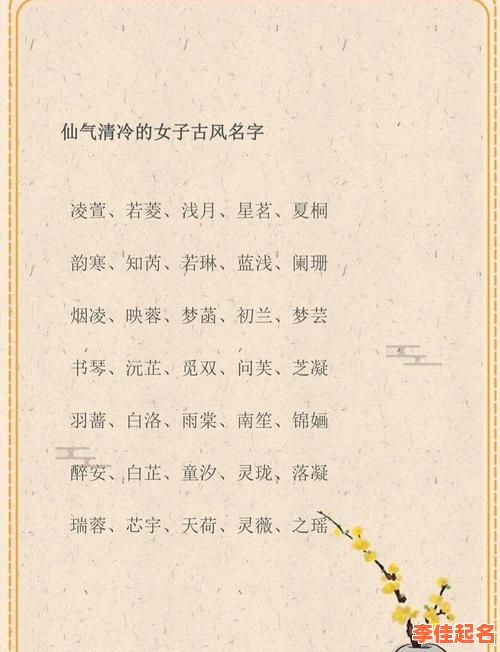 仙气清冷的女子古风名字
凌萱、若菱、浅月、星茗、夏桐
韵寒、知芮、若琳、蓝浅、阑珊
烟凌、映蓉、梦菡、初兰、梦芸
书琴、沅芷、觅双、问芙、芝凝
羽蔷、白洛、雨棠、南笙、锦婳
醉安、白芷、童汐、灵珑、落凝
瑞蓉、芯宇、天荷、灵薇、之瑶
李佳起名